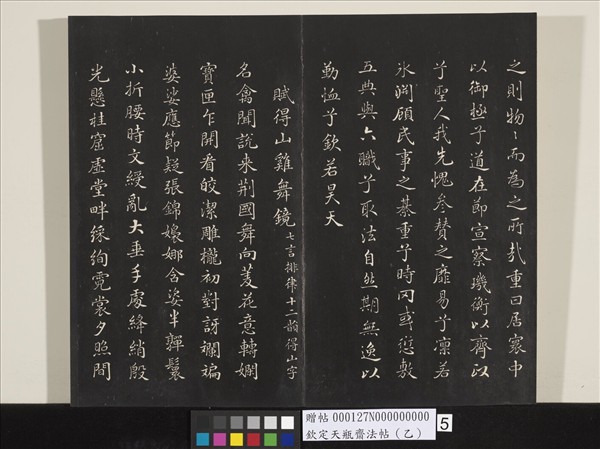 之則物〻而為之所哉重曰居寰中
以御極兮道在節宣察璣衡以齊政
兮聖人我先愧參贊之靡易兮凜若
氷淵顧民事之基重兮時罔或愆敷
五典與六職兮取法自然期無逸以
勤恤兮欽若昊天
賦得山雞舞鏡七言排律十二韻得山字
名禽聞說来荆國舞向菱花意轉嫻
寶匣乍開看皎潔雕櫳初對訝斕斒
婆娑應節疑張錦嬝娜含姿半嚲鬟
小折腰時文綬亂大垂手處絳綃殷
光懸桂窟虛堂畔綵絢霓裳夕照間
贈帖 000127N000000000
欽定天瓶齋法帖（乙）
5